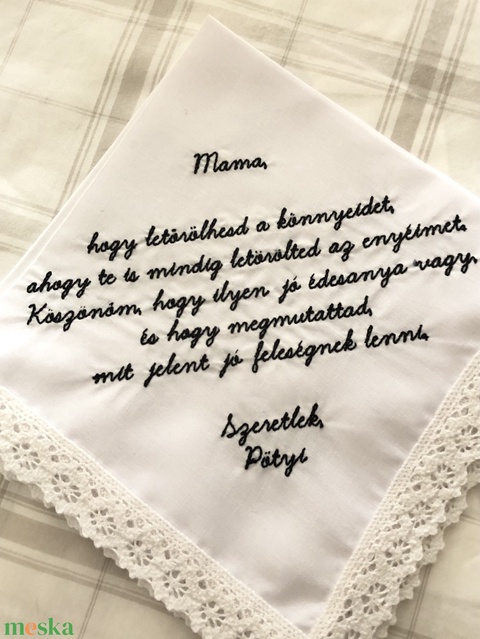 Mama,
hogy letörölhesd a könnyeidet,
ahogy te is mindig letörölted az enyéimet.
Köszönöm, hogy ilyen jó édesanya vagy,
és hogy megmutattad,
mit jelent jó feleségnek lenni.
Szeretlek,
Pötyi
meska